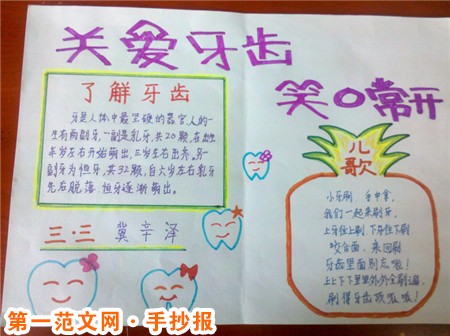 关爱牙齿
笑口常开
了解牙齿
牙是人体中最坚硬的器官,人的一
生有两副牙,一副是乳牙,共20颗,在出生
半岁左右开始萌出,三岁左右出齐。另一
副牙为恒牙,共32颗,自六岁左右乳牙
先后脱落,恒牙逐渐萌出。
三·三 冀辛泽
儿歌
小牙刷 手中拿,
我们一起来刷牙,
上牙往上刷 下牙往下刷
咬合面,来回刷
牙齿里面别忘啦!
上上下下里里外外全刷遍
刷得牙齿顶呱呱!
第一范文网·手抄报